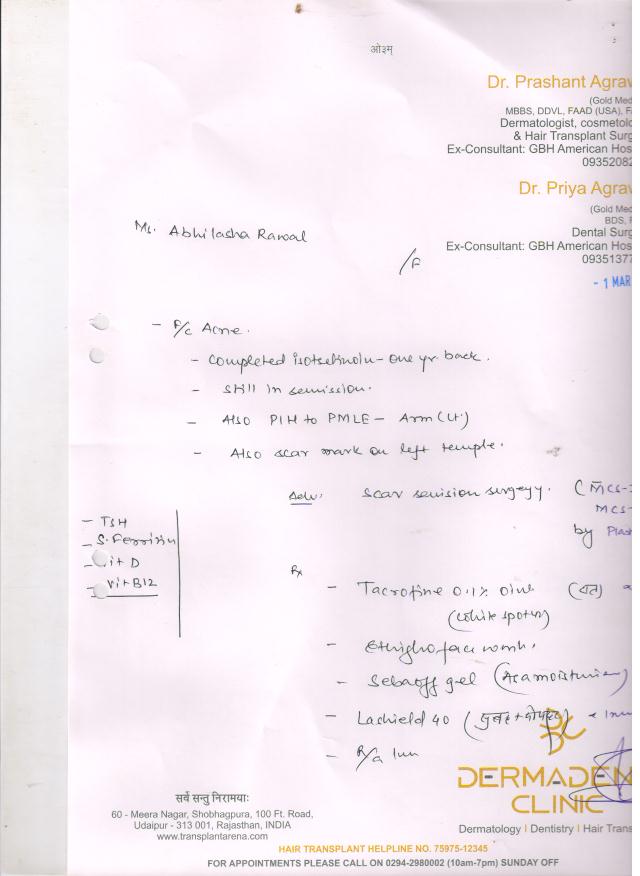 ओ३म्
Dr. Prashant Agraw
(Gold Med
MBBS, DDVL, FAAD (USA), F
Dermatologist, cosmetolo
& Hair Transplant Surg
Ex-Consultant: GBH American Hos
09352082
Dr. Priya Agraw
(Gold Med
BDS, F
Dental Surg
Ex-Consultant: GBH American Hos
09351377
- 1 MAR
Ms. Abhilasha Rawal
/F
- P/c Acne.
- Completed isotretinoin - one yr. back.
- Still in remission.
- Also PIH to PMLE - Arm (Lt.)
- Also scar mark on left temple.
Adv: Scar revision surgery. (MCS-
MCS-
by Plas
- TSH
- S. Ferritin
- Vit D
- Vit B12
Rx
- Tacrofine 0.1% oint (रात)
(white spots)
- face wash.
- Sebaoff gel (As a moisturiser)
- Lashield 40 (सुबह+दोपहर)
- R/a
DERMADEN
CLINIC
Dermatology | Dentistry | Hair Trans
सर्वे सन्तु निरामयाः
60 - Meera Nagar, Shobhagpura, 100 Ft. Road,
Udaipur - 313 001, Rajasthan, INDIA
www.transplantarena.com
HAIR TRANSPLANT HELPLINE NO. 75975-12345
FOR APPOINTMENTS PLEASE CALL ON 0294-2980002 (10am-7pm) SUNDAY OFF